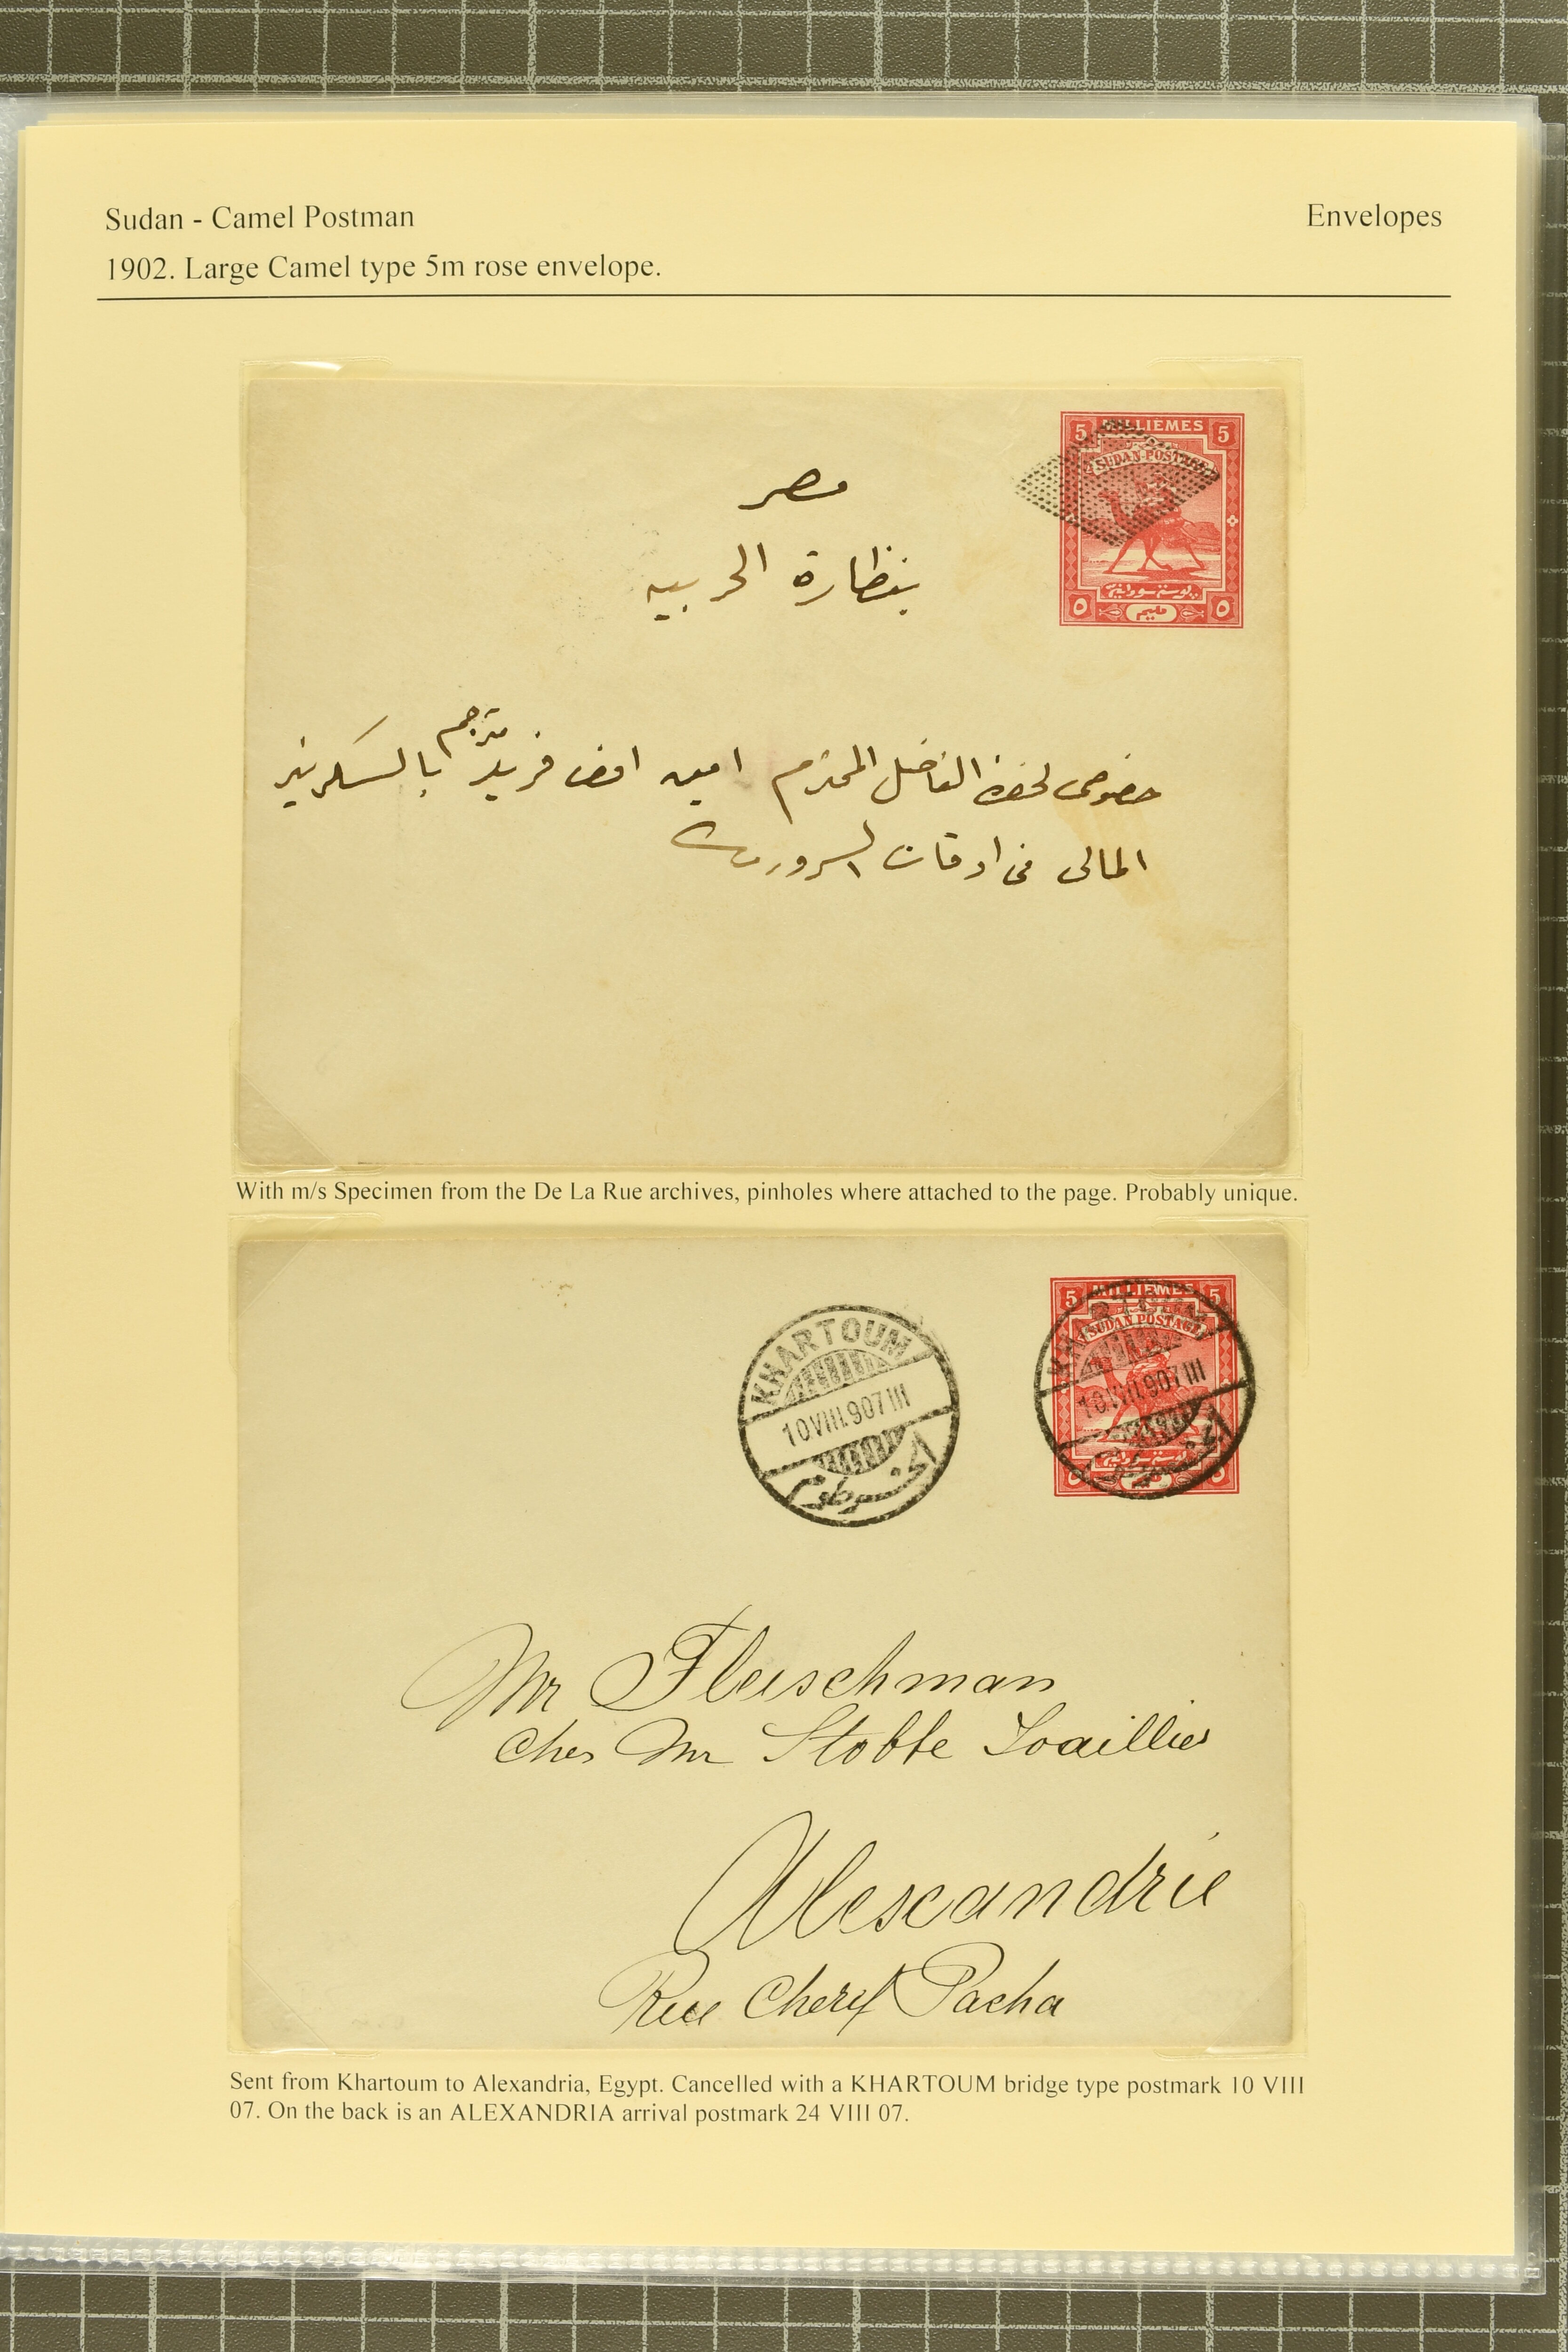 Sudan - Camel Postman
Envelopes
1902. Large Camel type 5m rose envelope.
5 MILLIÈMES 5
SUDAN POSTAGE
بوستة سودانية
٥ مليم ٥
مصر
بنظارة الحربيه
خصوصى لحضرة الفاضل المحترم امين افند فريد مترجم بالسكرتير
المالى فى اوقات السرور
With m/s Specimen from the De La Rue archives, pinholes where attached to the page. Probably unique.
KHARTOUM
10 VIII.907 III
الخرطوم
5 MILLIÈMES 5
SUDAN POSTAGE
KHARTOUM
10 VIII.907 III
Mr Fleischman
Ches Mr Stobbe Joaillier
Alexandrie
Rue Cherif Pacha
Sent from Khartoum to Alexandria, Egypt. Cancelled with a KHARTOUM bridge type postmark 10 VIII
07. On the back is an ALEXANDRIA arrival postmark 24 VIII 07.